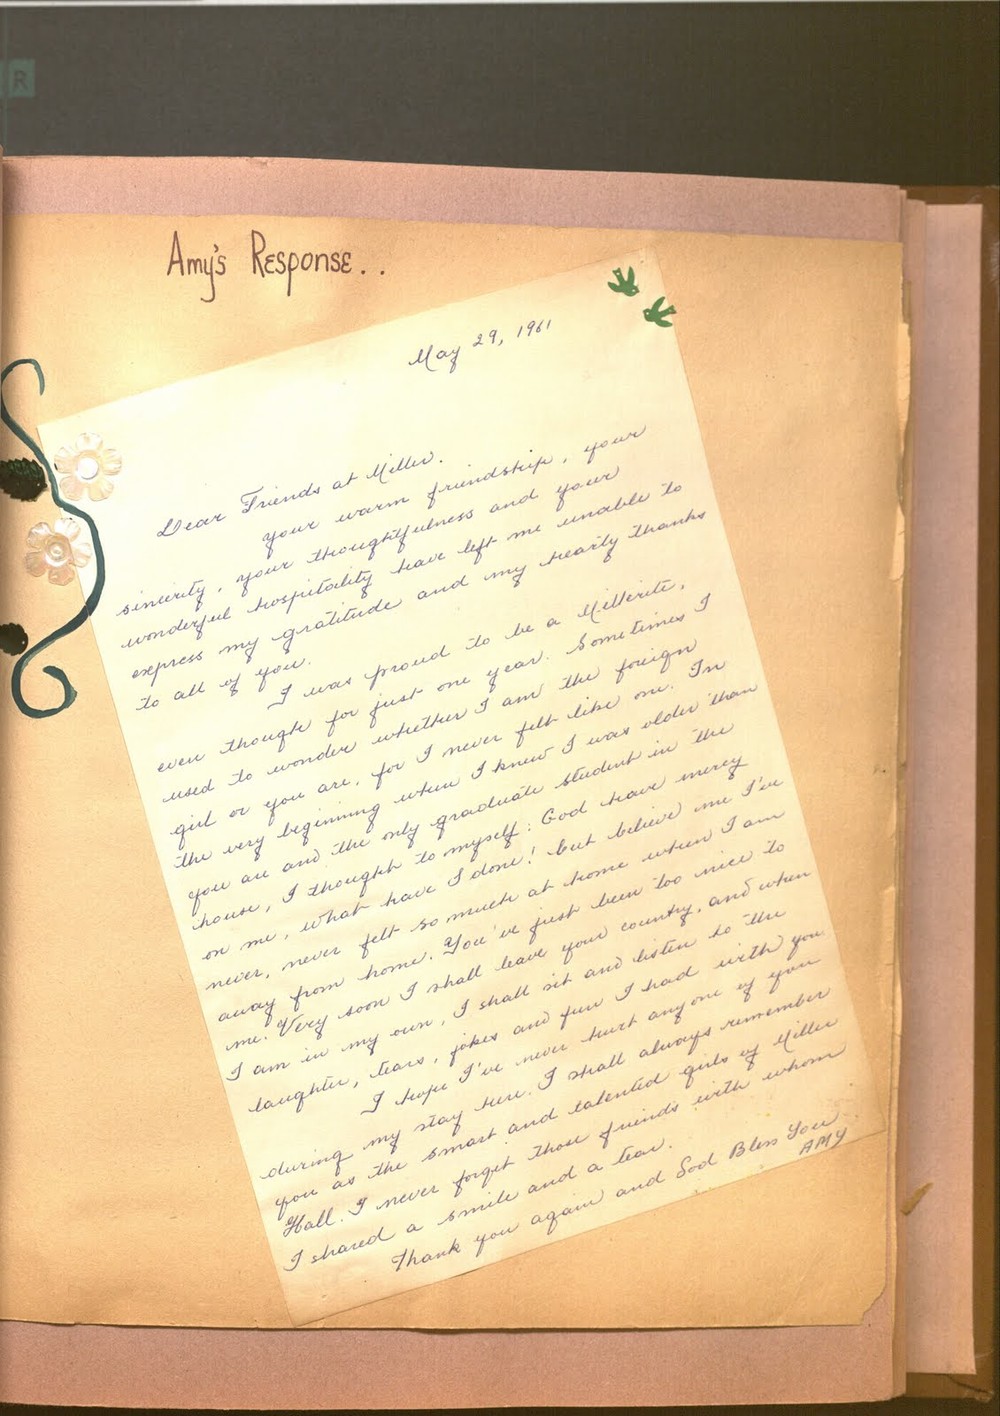 R
Amy's Response..
May 29, 1961
Dear Friends at Miller.
your warm friendship, your
sincerity, your thoughtfulness and your
wonderful hospitality have left me unable to
express my gratitude and my hearty thanks
to all of you.
I was proud to be a Millerite,
even though for just one year. Sometimes I
used to wonder whether I am the foreign
girl or you are, for I never felt like one. In
the very beginning when I knew I was older than
you are and the only graduate student in the
house, I thought to myself: God have mercy
on me, what have I done! but believe me I've
never, never felt so much at home when I am
away from home. You've just been too nice to
me. Very soon I shall leave your country, and when
I am in my own, I shall sit and listen to the
laughter, tears, jokes and fun I had with you.
I hope I've never hurt anyone of you
during my stay here. I shall always remember
you as the smart and talented girls of Miller
Hall. I never forget those friends with whom
I shared a smile and a tear.
Thank you again and God Bless You.
AMY